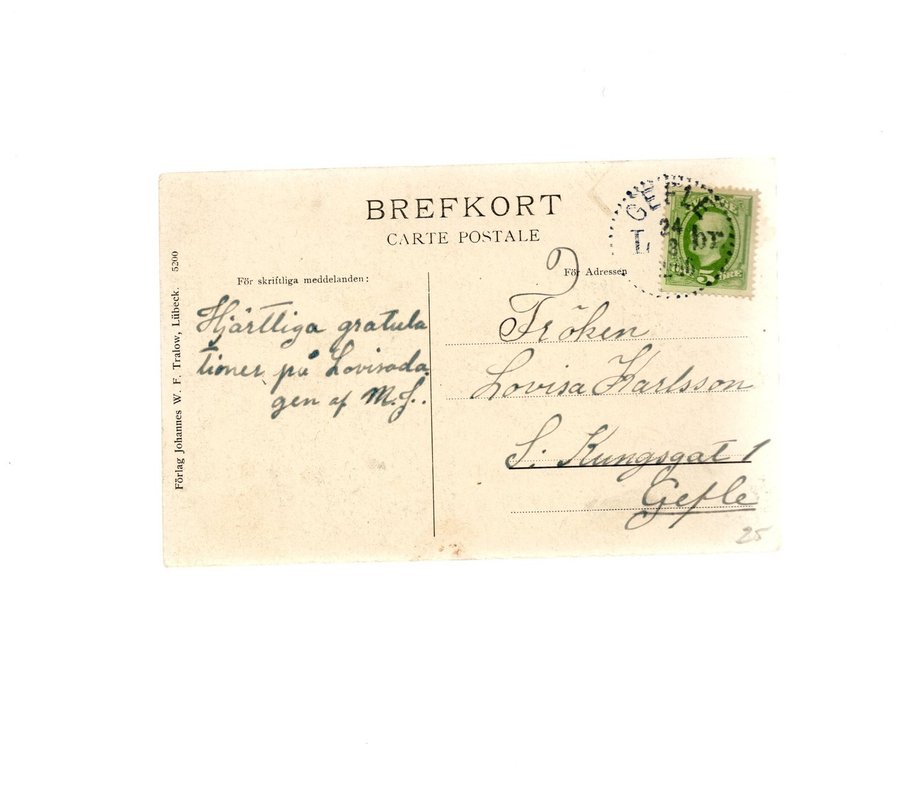 BREFKORT
CARTE POSTALE
För skriftliga meddelanden:
För Adressen
Hjärtliga gratula
tioner på Lovisada
gen af M.S..
Fröken
Lovisa Karlsson
S. Kungsgat 1
Gefle
25
Förlag Johannes W. F. Tralow, Lübeck. 5200
GEFLE
L br
24
5 ÖRE